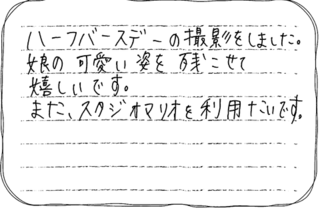 ハーフバースデーの撮影をしました。
娘の可愛い姿を残こせて
嬉しいです。
また、スタジオマリオを利用たいです。